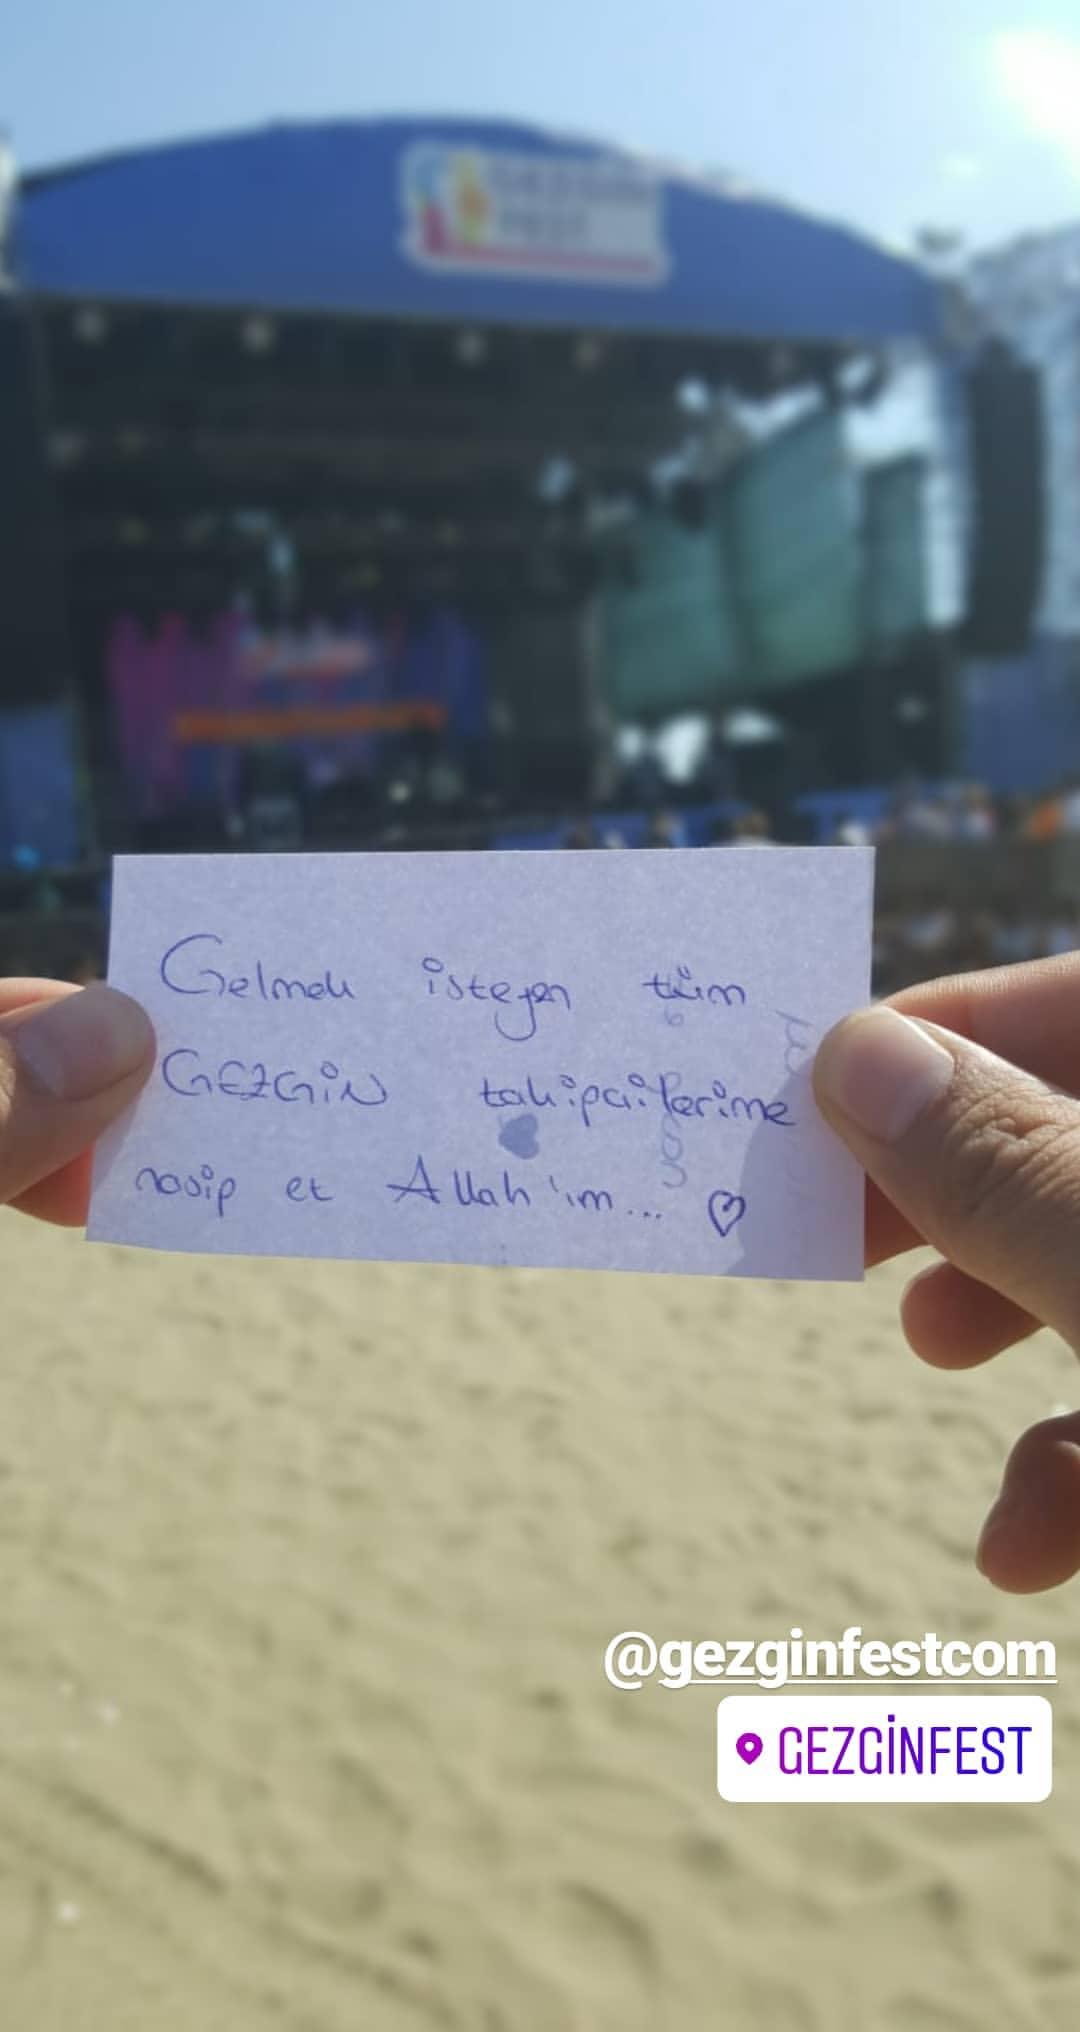 GEZGİN
FEST
Gelmek isteyen tüm
GEZGİN takipçilerime
nasip et Allah'ım... ♡
@gezginfestcom
GEZGİNFEST